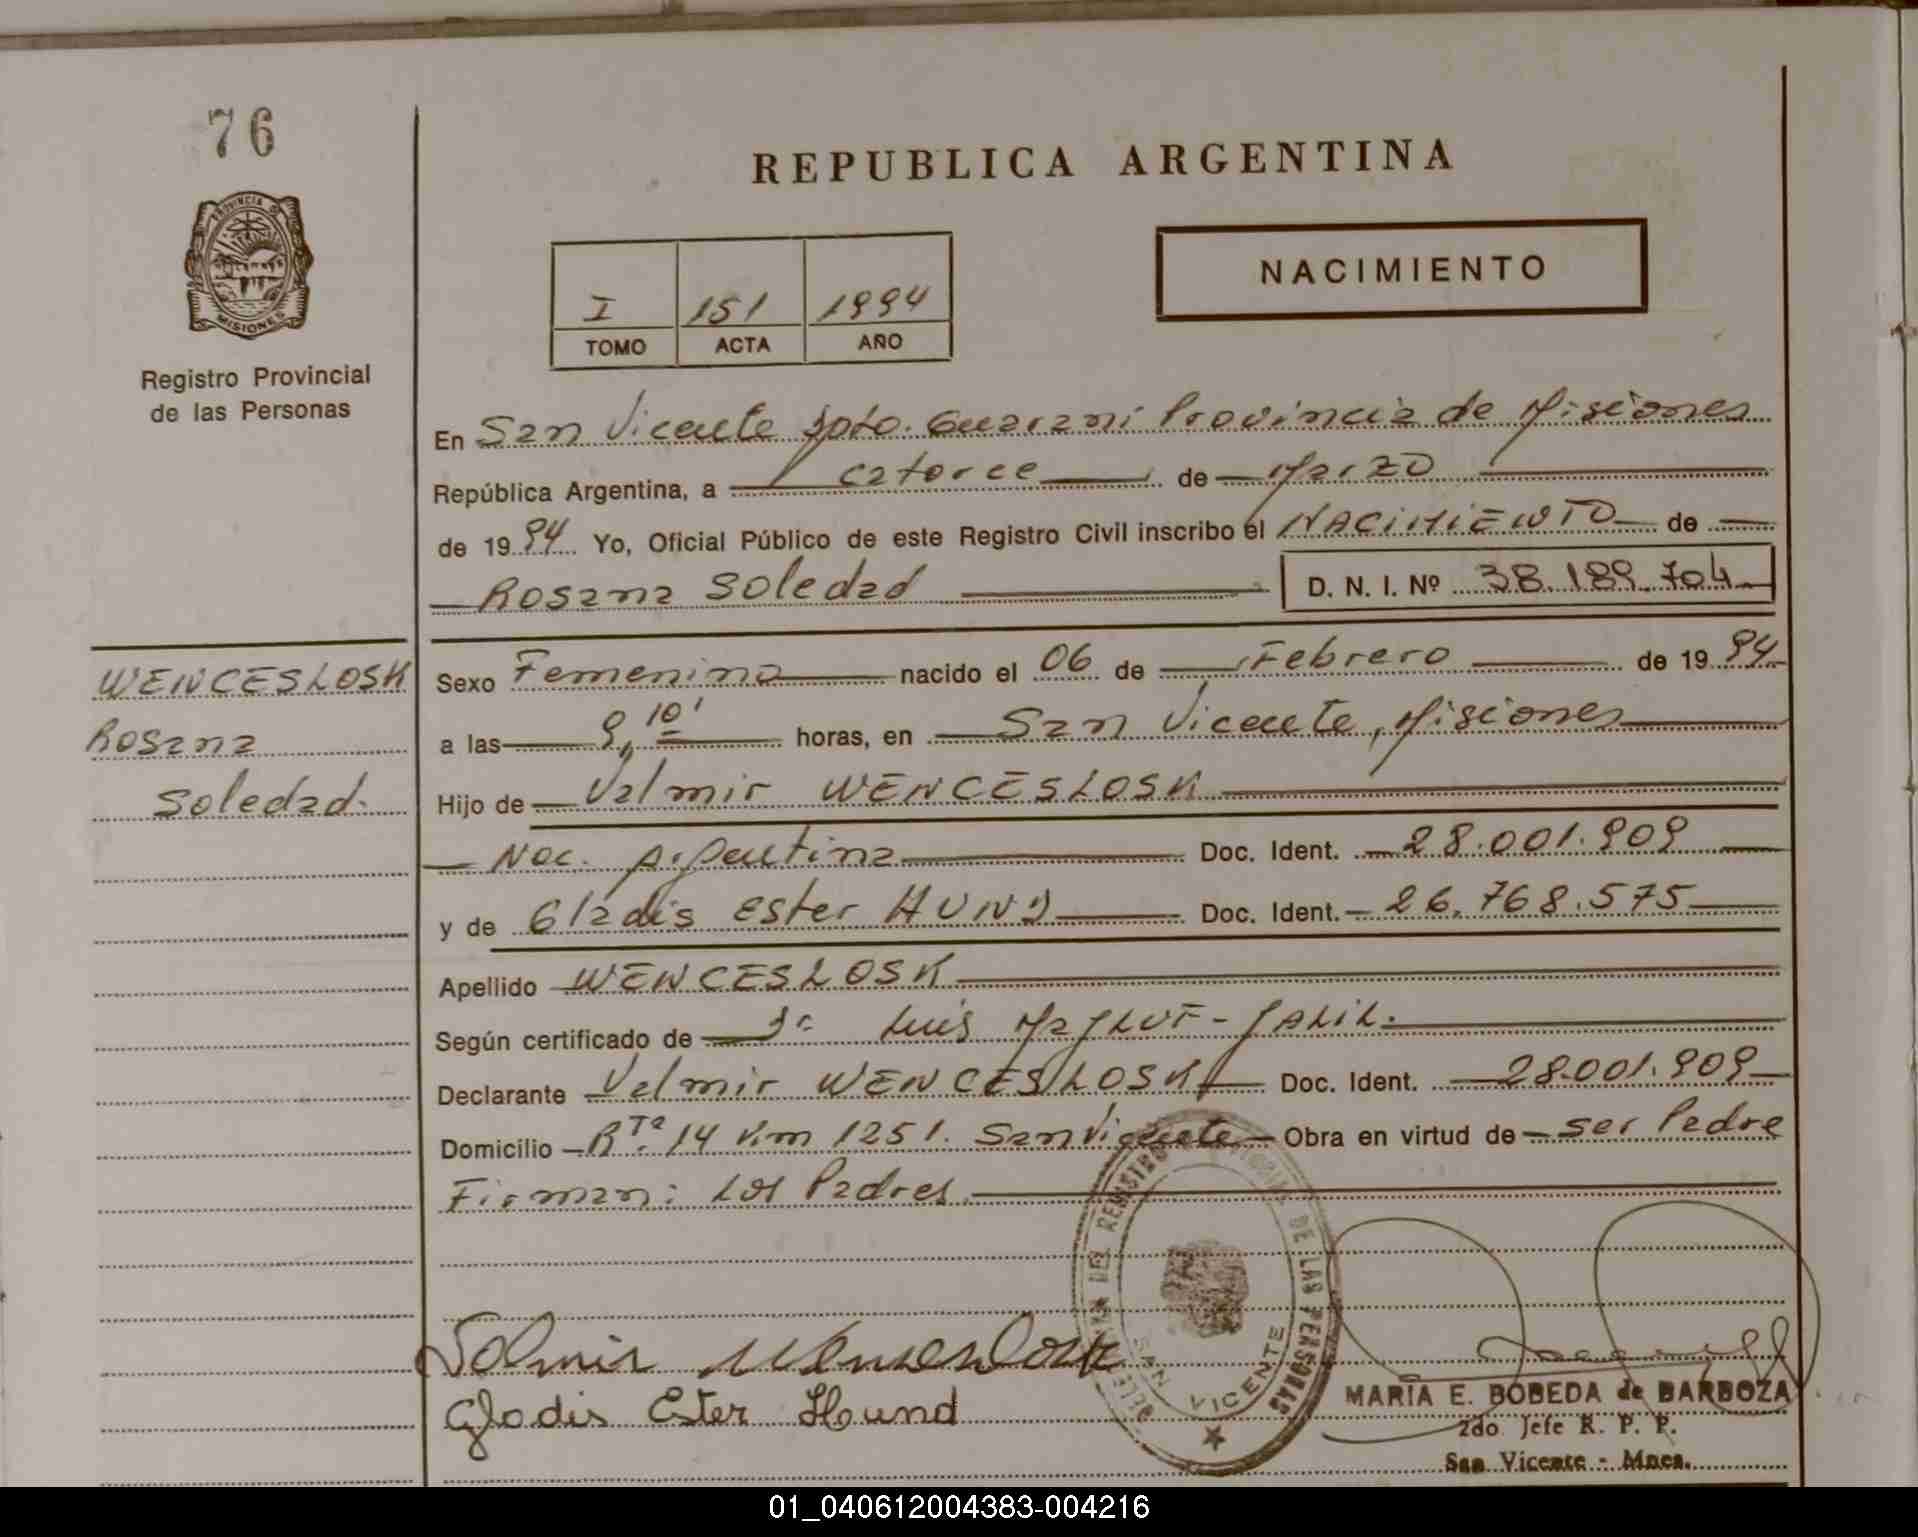 76
PROVINCIA DE
MISIONES
Registro Provincial
de las Personas
REPUBLICA ARGENTINA
I 151 1994
TOMO ACTA AÑO
NACIMIENTO
En San Vicente Dpto. Guaraní Provincia de Misiones
República Argentina, a catorce de Marzo
de 1994 Yo, Oficial Público de este Registro Civil inscribo el NACIMIENTO de
Rosana Soledad D. N. I. Nº 38.189.704
WENCESLOSK
Rosana
Soledad.
Sexo Femenino nacido el 06 de Febrero de 1994
a las 9,10' horas, en San Vicente, Misiones
Hijo de Valmir WENCESLOSK
Nac. Argentina Doc. Ident. 28.001.909
y de Gladis Ester HUND Doc. Ident. 26.768.575
Apellido WENCESLOSK
Según certificado de Dr. Luis
Declarante Valmir WENCESLOSK Doc. Ident. 28.001.909
Domicilio Rta. 14 Km 1251. San Vicente Obra en virtud de ser Padre
Firman: Los Padres.
DEL REGISTRO DE LAS PERSONAS
SAN VICENTE
Valmir Wenceslosk
Gladis Ester Hund
MARIA E. BOBEDA de BARBOZA
2do Jefe R. P. P.
San Vicente - Mnes.
01_040612004383-004216